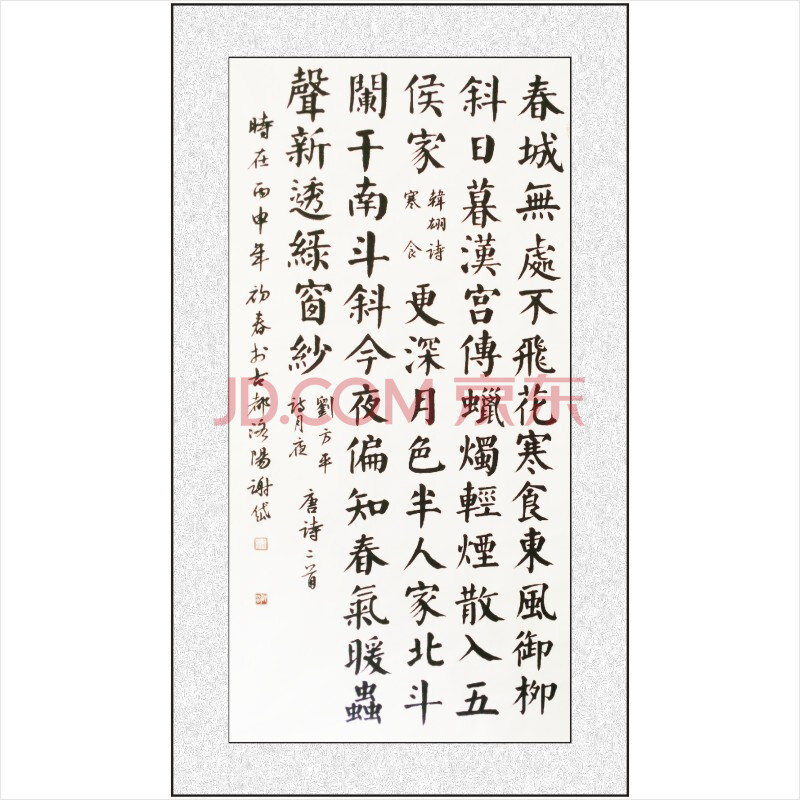 春城無處不飛花寒食東風御柳
斜日暮漢宮傳蠟燭輕煙散入五
侯家
韓翃诗
寒食
更深月色半人家北斗
闌干南斗斜今夜偏知春氣暖蟲
聲新透綠窗紗
劉方平
诗月夜
唐诗二首
時在丙申年初春於古都洛陽謝岱
JD.COM 京东